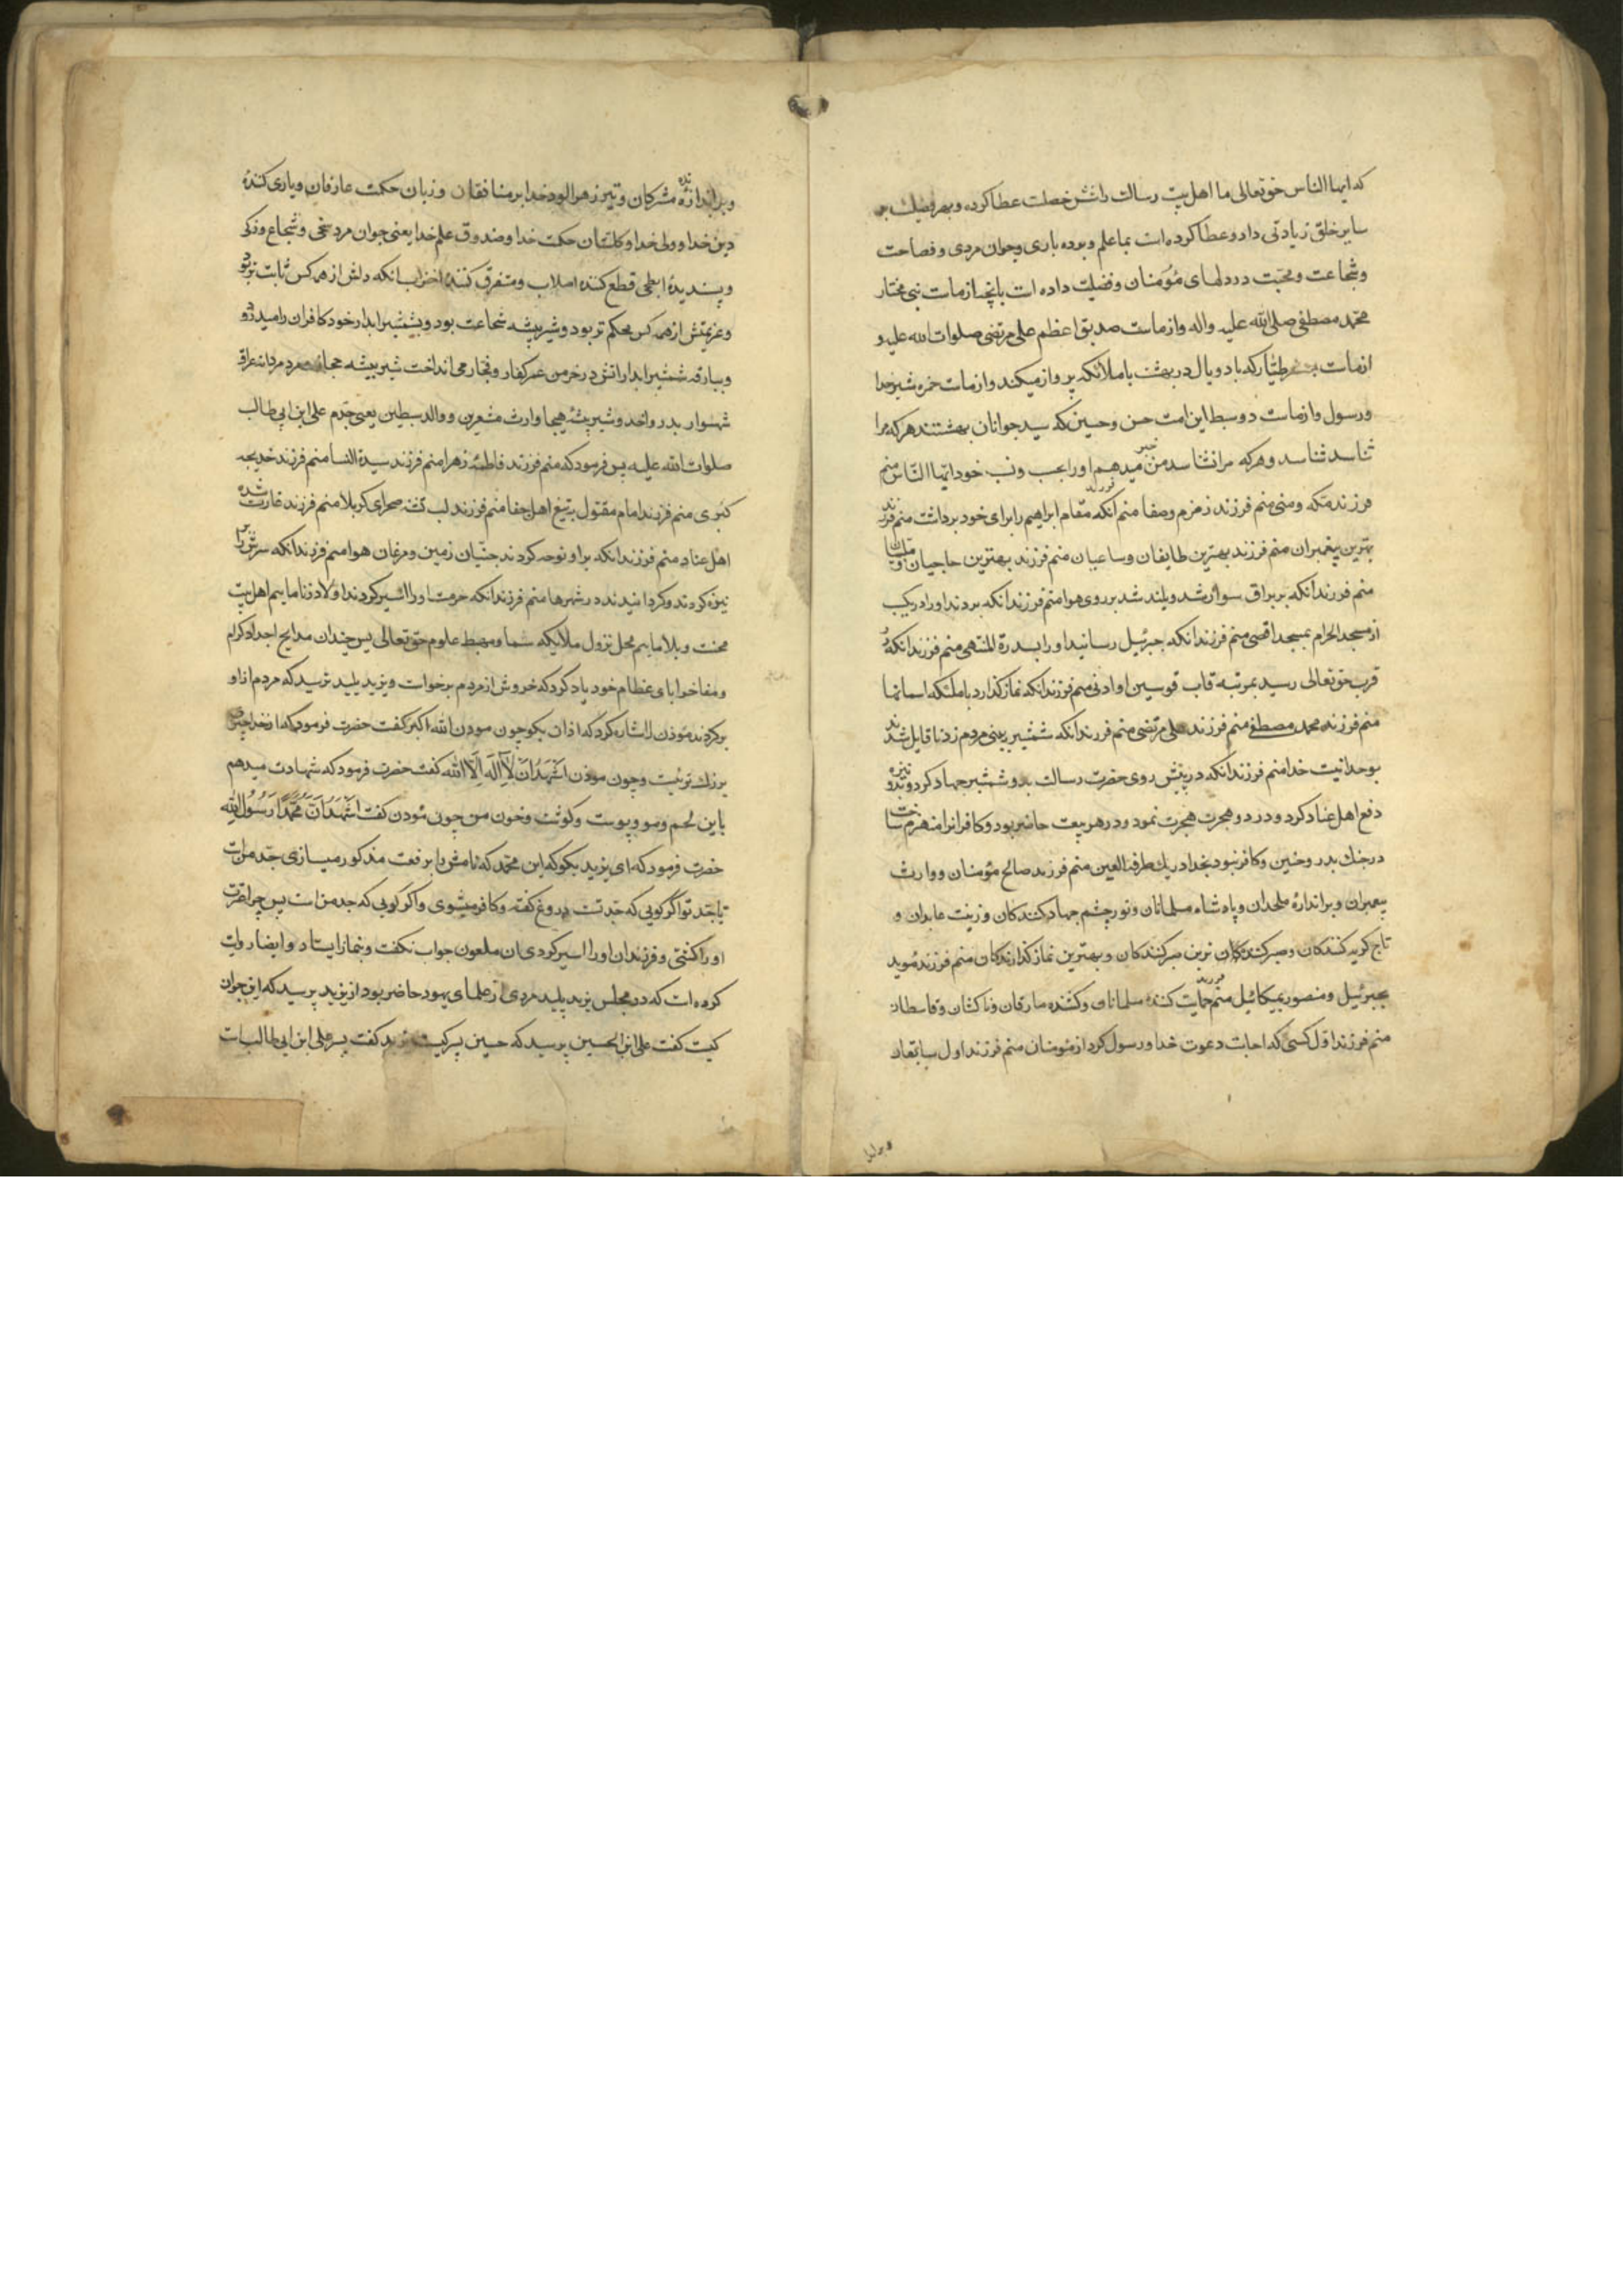 که ایها الناس حق تعالی ما اهل بیت رسالت را شش خصلت عطا کرده و بهر فضیلت بر
سایر خلق زیادتی داد و عطا کرده است بما علم و برده باری و جوان مردی و فصاحت
و شجاعت و محبت در دلهای مؤمنان و فضیلت داده است بآنچه از ماست نبی مختار
محمد مصطفی صلی الله علیه واله و از ماست صدیق اعظم علی مرتضی صلوات الله علیه و
از ماست جعفر طیار که با دو بال در بهشت با ملائکه پرواز میکند و از ماست حمزه شیر خدا
و رسول و از ماست دو سبط این امت حسن و حسین که سید جوانان بهشتند هر که مرا
شناسد شناسد و هر که مرا نشناسد من خبر میدهم او را بحسب و نسب خود ایها الناس منم
فرزند مکه و منی منم فرزند زمزم و صفا منم فرزند آنکه مقام ابراهیم را بردای خود برداشت منم فرزند
بهترین پیغمبران منم فرزند بهترین طایفان و ساعیان منم فرزند بهترین حاجیان و
منم فرزند آنکه بر براق سوار شد و بلند شد بر روی هوا منم فرزند آنکه بردند او را در یکشب
از مسجد الحرام بمسجد اقصی منم فرزند آنکه جبرئیل رسانید او را بسدرة المنتهی منم فرزند آنکه در
قرب حق تعالی رسید بمرتبه قاب قوسین او ادنی منم فرزند آنکه نماز گذارد با ملئکه اسمانها
منم فرزند محمد مصطفی منم فرزند علی مرتضی منم فرزند آنکه شمشیر بر بینی مردم زد تا قایل شدند
بوحدانیت خدا منم فرزند آنکه در پیش روی حضرت رسالت بدو شمشیر جهاد کرد و بدو نیزه
دفع اهل عناد کرد و در دو هجرت هجرت نمود و در هر بیعت حاضر بود و کافرانرا منهزم ساخت
در جنک بدر و حنین و کافر نبود بخدا در یک طرفة العین منم فرزند صالح مؤمنان و وارث
پیغمبران و براندازهٔ ملحدان و پادشاه مسلمانان و نور چشم جهاد کنندکان و زینت عابدان و
تاج کریه کنندکان و صبر کننده ترین صبر کنندکان و بهترین نماز کذارندکان منم فرزند مؤید
بجبرئیل و منصور بمیکائیل منم فرزند حمایت کننده مسلمانان و کشنده مارقان و ناکثان و قاسطان
منم فرزند اوّل کسی که اجابت دعوت خدا و رسول کرد از مؤمنان منم فرزند اول سابقان
و براندازندهٔ مشرکان و تیر زهرالود خدا بر منافقان و زبان حکمت عارفان و یاری کنندهٔ
دین خدا و ولی خدا و کلستان حکمت خدا و صندوق علم خدا یعنی جوان مرد سخی و شجاع و ذکی
و پسندیدهٔ ابطحی قطع کننده اصلاب و متفرق کنندهٔ احزاب آنکه دلش از همه کس ثابت تر بود
و عزیمتش از همه کس محکم تر بود و شیر بیشه شجاعت بود و بشمشیر ابدار خود کافران را میدرود
و ببارقه شمشیر ابدار اتش در خرمن عمر کفار و فجار می انداخت شیر بیشه حجاز مرد مردانه عراق
شهسوار بدر و احد و شیر بیشهٔ هیجا وارث مشعرین و والد سبطین یعنی جدم علی ابن ابی طالب
صلوات الله علیه پس فرمود که منم فرزند فاطمهٔ زهرا منم فرزند سیدة النسا منم فرزند خدیجه
کبری منم فرزند امام مقتول بتیغ اهل جفا منم فرزند لب تشنه صحرای کربلا منم فرزند غارت شده
اهل عناد منم فرزند آنکه بر او نوحه کردند جنیان زمین و مرغان هوا منم فرزند آنکه سرش را بر
نیزه کردند و کردانیدند در شهرها منم فرزند آنکه حرمت او را اسیر کردند اولاد زنا ماییم اهل بیت
محنت و بلا ماییم محل نزول ملایکه سما و مهبط علوم حق تعالی پس چندان مدایح اجداد کرام
و مفاخر ابای عظام خود یاد کرد که خروش از مردم برخواست و یزید پلید ترسید که مردم از او
برکردند مؤذن را اشاره کرد که اذان بکو چون مودن الله اکبر کفت حضرت فرمود که از خدا چیزی
بزرك تر نیست و چون موذن اَشهَدُ اَنْ لاَ اِلَهَ اِلاَّ الله کفت حضرت فرمود که شهادت میدهم
باین لحم و مو و پوست و کوشت و خون من چون مؤذن کفت اَشهَدُ اَنَّ مُحَمَّدًا رَسُولُ اللهِ
حضرت فرمود که ای یزید بکو که این محمد که نامش را برفعت مذکور میسازی جد من است
یا جد تو اگر کویی که جد تست دروغ کفته و کافر میشوی و اگر کویی که جد من است پس چرا عترت
او را کشتی و فرزندان او را اسیر کردی ان ملعون جواب نکفت و بنماز ایستاد و ایضا روایت
کرده است که در مجلس یزید پلید مردی از علمای یهود حاضر بود از یزید پرسید که این جوان
کیست کفت علی ابن الحسین پرسید که حسین پسر کیست یزید کفت پسر علی ابن ابی طالب است